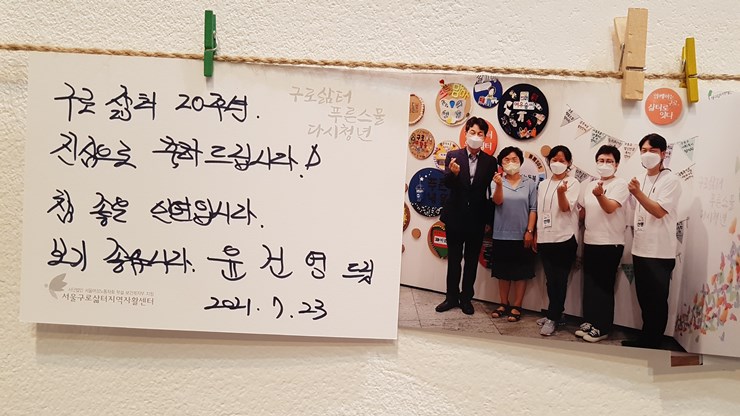 구로 삶터 20주년.
진심으로 축하드립니다!
참 좋은 사업입니다.
보기 좋습니다. 윤건영 드림
2021. 7. 23
구로삶터
푸른스물
다시청년
서울구로삶터지역자활센터